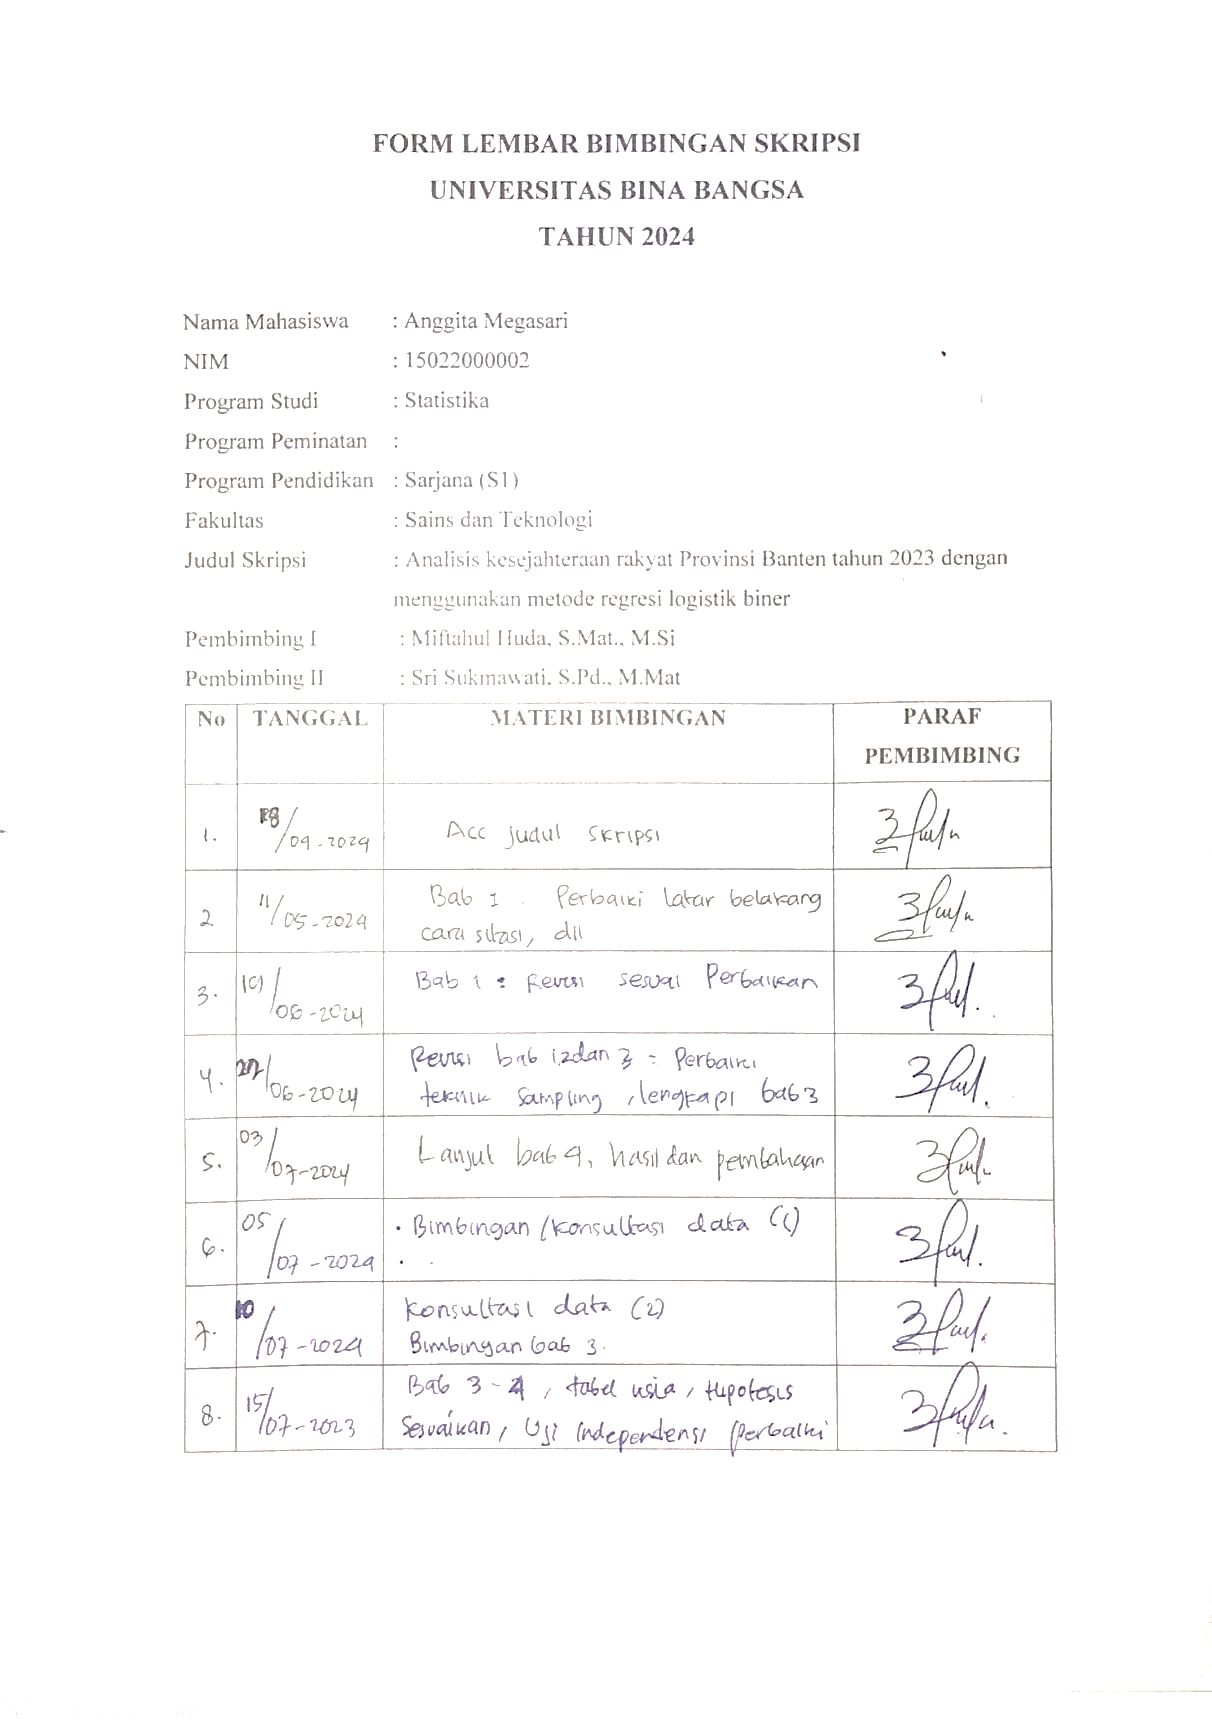 FORM LEMBAR BIMBINGAN SKRIPSI
UNIVERSITAS BINA BANGSA
TAHUN 2024
Nama Mahasiswa : Anggita Megasari
NIM : 15022000002
Program Studi : Statistika
Program Peminatan :
Program Pendidikan : Sarjana (S1)
Fakultas : Sains dan Teknologi
Judul Skripsi : Analisis kesejahteraan rakyat Provinsi Banten tahun 2023 dengan
menggunakan metode regresi logistik biner
Pembimbing I : Miftahul Huda, S.Mat., M.Si
Pembimbing II : Sri Sukmawati, S.Pd., M.Mat
No TANGGAL MATERI BIMBINGAN PARAF
PEMBIMBING
1. /04-2024 Acc judul skripsi
2. 11/05-2024 Bab 1 . Perbaiki latar belakang
cara sitasi, dll
3. /06-2024 Bab 1 : Revisi sesuai Perbaikan
4. /06-2024 Revisi bab 1,2 dan 3 : Perbaiki
teknik sampling, lengkapi bab 3
5. 03/07-2024 Lanjut bab 4, hasil dan pembahasan
6. 05/07-2024 • Bimbingan/konsultasi data (1)
7. 10/07-2024 Konsultasi data (2)
Bimbingan bab 3.
8. 15/07-2023 Bab 3-4, tabel usia, Hipotesis
Sesuaikan, Uji independensi perbaiki